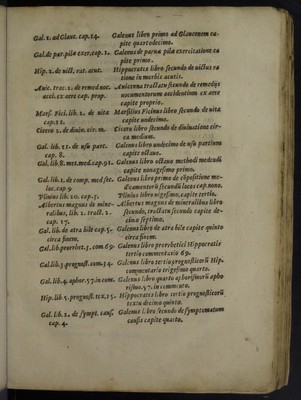 Gal. 1. ad Glauc. cap. 14. Galenus libro primo ad Glauconem ca-
pite quartodecimo.
Gal. de par. pilæ exer. cap. 1. Galenus de parua pilæ exercitatione ca
pite primo.
Hip. 2. de vict. rat. acut. Hippocrates libro secundo de victus ra
tione in morbis acutis.
Auic. trac. 2. de remed. noc. Auicenna tractatu secundo de remedijs
acci. ex aere cap. prop. nocumentorum accidentium ex aere
capite proprio.
Mars. Fici. lib. 2. de vita Marsilius Ficinus libro secundo de vita
cap. 11. capite vndecimo.
Cicero 2. de diuin. cir. m. Cicero libro secundo de diuinatione cir-
ca medium.
Gal. lib. 11. de vsu part. Galenus libro vndecimo de vsu partium
cap. 8. capite octauo.
Gal. lib. 8. met. med. cap. 91. Galenus libro octauo methodi medendi
capite nonagesimo primo.
Gal. lib. 1. de comp. med. sec. Galenus libro primo de cõpositione me-
loc. cap. 9 dicamentorũ secundũ locos cap. nono.
Plinius lib. 20. cap. 5. Plinius libro vigesimo, capite tertio.
Albertus magnus de mine- Albertus magnus de mineralibus libro
ralibus, lib. 2. tract. 2. secundo, tractatu secundo capite de-
cap. 17. cimo septimo.
Gal. lib. de atra bile cap. 5. Galenus libro de atra bile capite quinto
circa finem. circa finem.
Gal. lib. prorrhet. 3. com. 69. Galenus libro prorrhetici Hippocratis
tertio commentario 69.
Gal. lib. 3. prognost. com. 34. Galenus libro tertio prognosticorũ Hip.
commentario trigesimo quarto.
Gal. lib. 4. aphor. 57. in com. Galenus libro quarto aphorismorũ apho
rismo. 57. in commento.
Hip. lib. 3. prognost. tex. 15. Hippocrates libro tertio prognosticorũ
textu decimo quinto.
Gal. lib. 2. de sympt. caus. Galenus libro secundo de symptomatum
cap. 4. causis capite quarto.